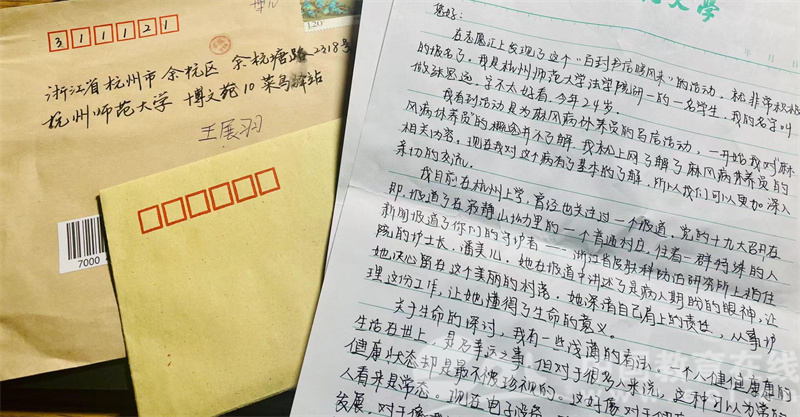 311121
浙江省杭州市余杭区余杭塘路2318号
杭州师范大学博文苑10菜鸟驿站
王展羽
120
7000
大学
年 月 日
您好:
在志愿汇上发现了这个"百封书信暖风来"的活动,就非常积极
的报名了。我是杭州师范大学法学院研一的一名学生,我的名字叫
做张思远,字不太好看,今年24岁。
我看到活动是为麻风病休养员的写信活动,一开始我对"麻
风病休养员"的概念并不了解,我就上网了解了麻风病休养员的
相关内容。现在我对这个病有了基本的了解,所以我们可以更加深入
亲切的交流。
我目前在杭州上学,曾经也关注过一个报道,党的十九大召开在
即,报道了在寂静山坳里的一个普通村庄,住着一群特殊的人
新闻报道了你们的守护者——浙江省皮肤科防治研究所上柏住
院的护士长,潘美儿。她在报道中讲述了是病人期盼的眼神,让
她决心留在这个美丽的村落。她深谙自己肩上的责任,从事护
理这份工作,让她懂得了生命的意义。
关于生命的探讨,我有一些浅薄的看法。一个人健健康康的
生活在世上,是多幸运之事,但对于很多人来说,这种习以为常的
健康状态却是最不被珍视的。这好像对于
人看来是常态。现在电子设备
发展,对于